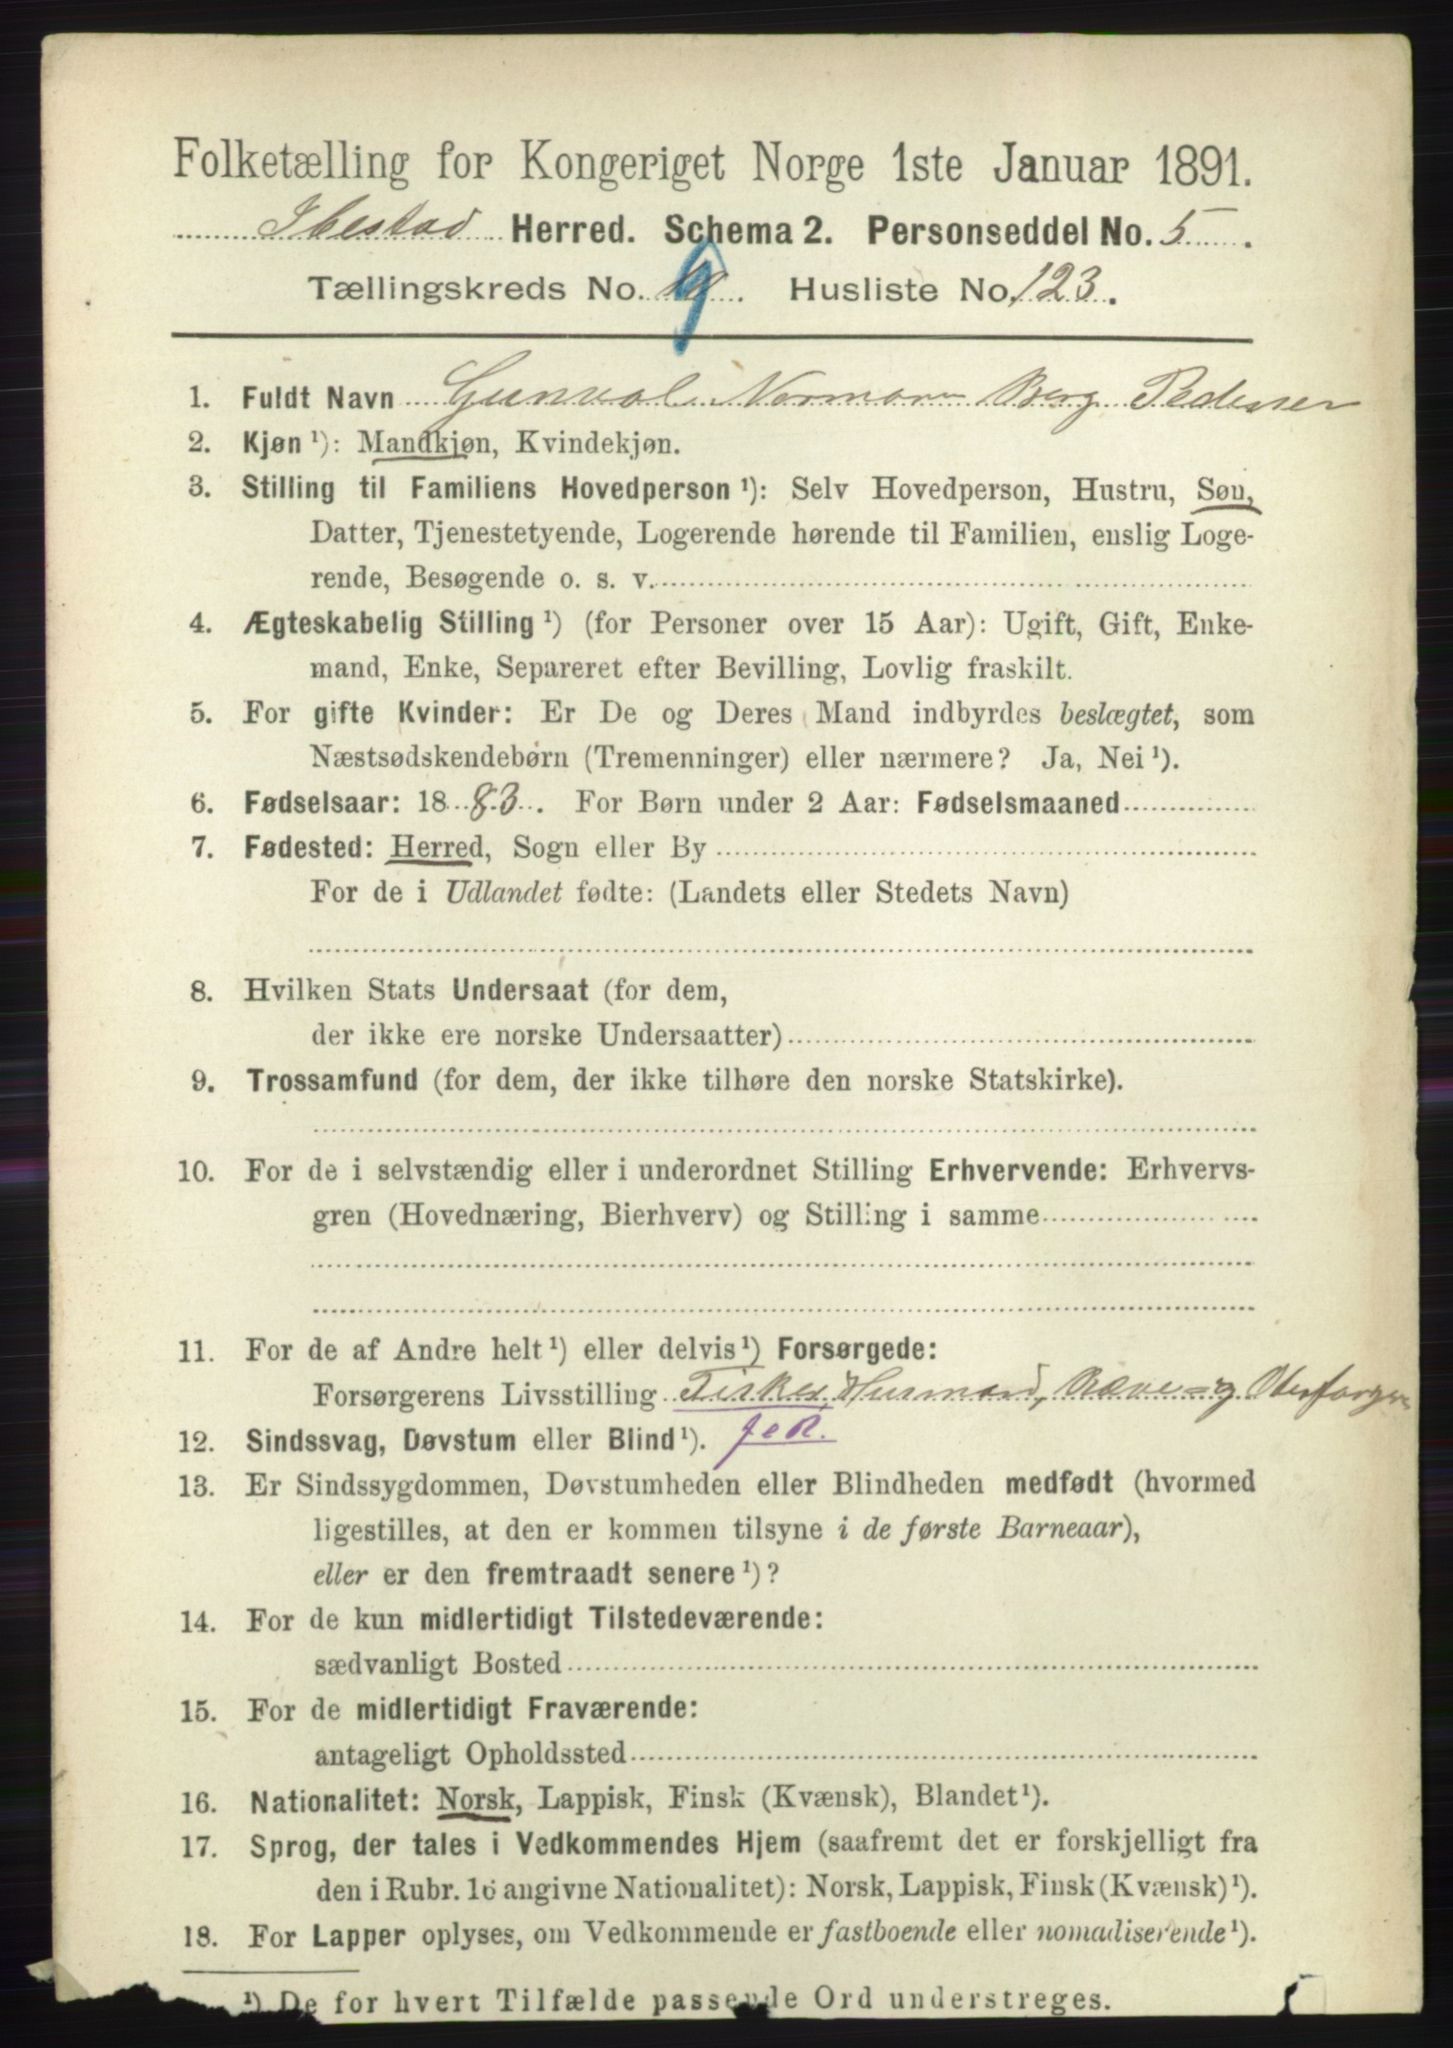 Folketælling for Kongeriget Norge 1ste Januar 1891.
Ibestad Herred. Schema 2. Personseddel No. 5.
Tællingskreds No. 9. Husliste No. 123.
1. Fuldt Navn Gunval Norman Berg Pedersen
2. Kjøn ¹): Mandkjøn, Kvindekjøn.
3. Stilling til Familiens Hovedperson ¹): Selv Hovedperson, Hustru, Søn,
Datter, Tjenestetyende, Logerende hørende til Familien, enslig Loge-
rende, Besøgende o. s. v.
4. Ægteskabelig Stilling ¹) (for Personer over 15 Aar): Ugift, Gift, Enke-
mand, Enke, Separeret efter Bevilling, Lovlig fraskilt.
5. For gifte Kvinder: Er De og Deres Mand indbyrdes beslægtet, som
Næstsødskendebørn (Tremenninger) eller nærmere? Ja, Nei ¹).
6. Fødselsaar: 1883. For Børn under 2 Aar: Fødselsmaaned
7. Fødested: Herred, Sogn eller By
For de i Udlandet fødte: (Landets eller Stedets Navn)
8. Hvilken Stats Undersaat (for dem,
der ikke ere norske Undersaatter)
9. Trossamfund (for dem, der ikke tilhøre den norske Statskirke).
10. For de i selvstændig eller i underordnet Stilling Erhvervende: Erhvervs-
gren (Hovednæring, Bierhverv) og Stilling i samme
11. For de af Andre helt ¹) eller delvis ¹) Forsørgede:
Forsørgerens Livsstilling Fisker, Husmand,
12. Sindssvag, Døvstum eller Blind ¹).
13. Er Sindssygdommen, Døvstumheden eller Blindheden medfødt (hvormed
ligestilles, at den er kommen tilsyne i de første Barneaar),
eller er den fremtraadt senere ¹)?
14. For de kun midlertidigt Tilstedeværende:
sædvanligt Bosted
15. For de midlertidigt Fraværende:
antageligt Opholdssted
16. Nationalitet: Norsk, Lappisk, Finsk (Kvænsk), Blandet ¹).
17. Sprog, der tales i Vedkommendes Hjem (saafremt det er forskjelligt fra
den i Rubr. 16 angivne Nationalitet): Norsk, Lappisk, Finsk (Kvænsk) ¹).
18. For Lapper oplyses, om Vedkommende er fastboende eller nomadiserende ¹).
¹) De for hvert Tilfælde passende Ord understreges.